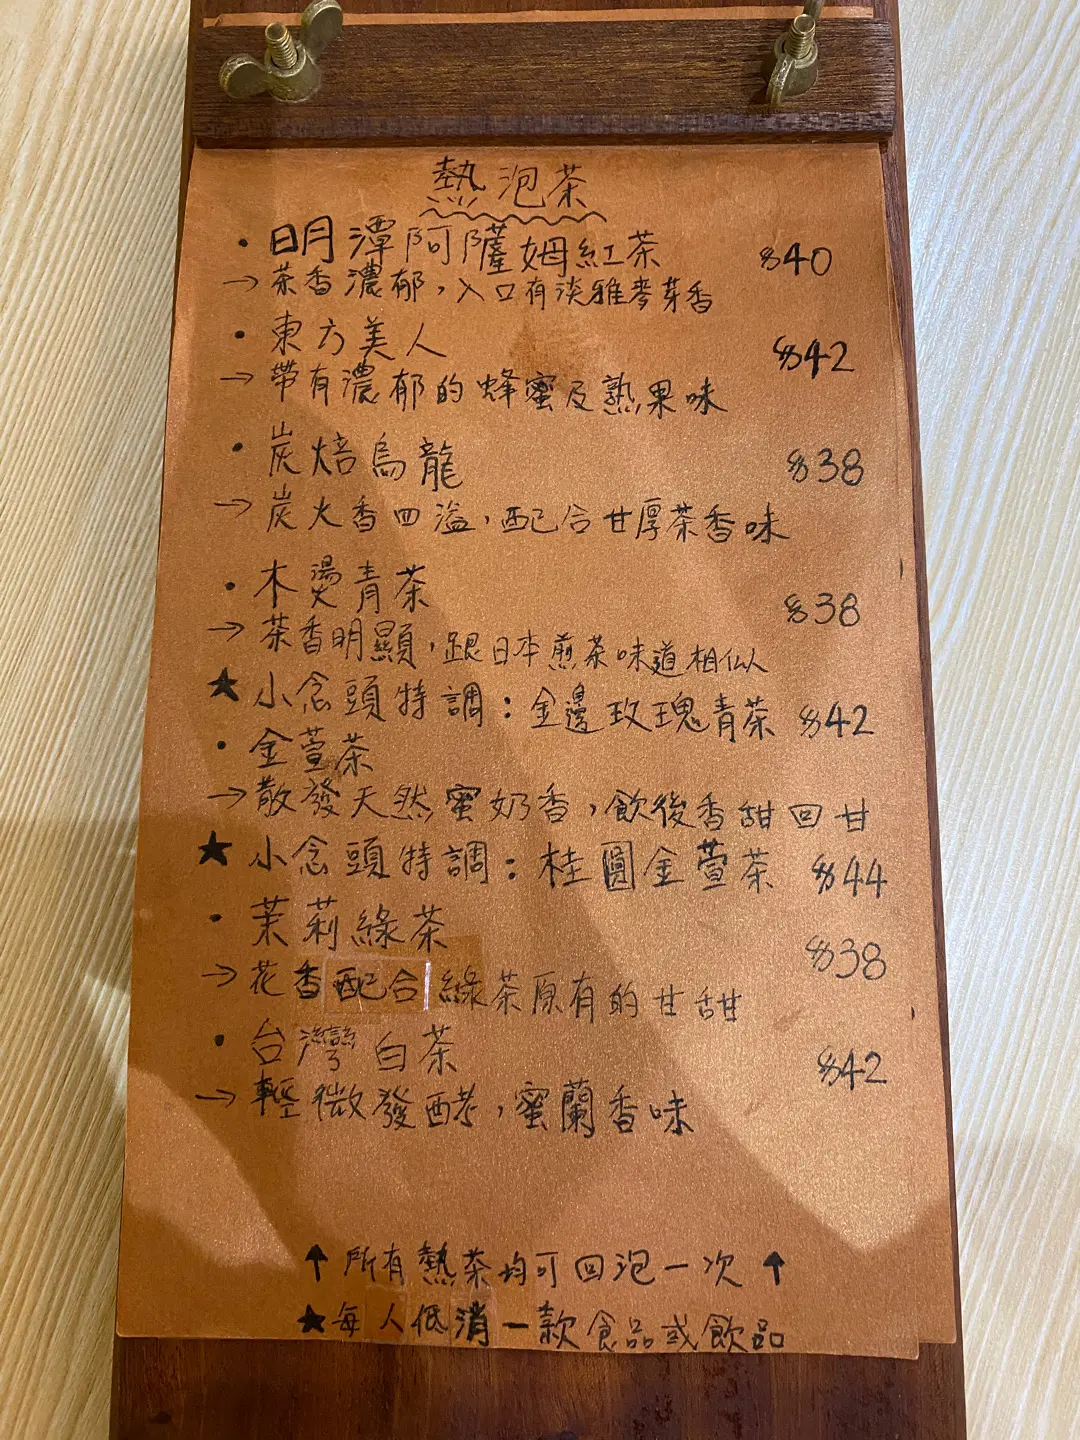 熱泡茶
• 日月潭阿薩姆紅茶 $40
→ 茶香濃郁，入口有淡雅麥芽香
• 東方美人 $42
→ 帶有濃郁的蜂蜜及熟果味
• 炭焙烏龍 $38
→ 炭火香四溢，配合甘厚茶香味
• 木燙青茶 $38
→ 茶香明顯，跟日本煎茶味道相似
★ 小念頭特調：金邊玫瑰青茶 $42
• 金萱茶
→ 散發天然蜜奶香，飲後香甜回甘
★ 小念頭特調：桂圓金萱茶 $44
• 茉莉綠茶 $38
→ 花香配合綠茶原有的甘甜
• 台灣白茶 $42
→ 輕微發酵，蜜蘭香味
↑ 所有熱茶均可回泡一次 ↑
★ 每人低消一款食品或飲品